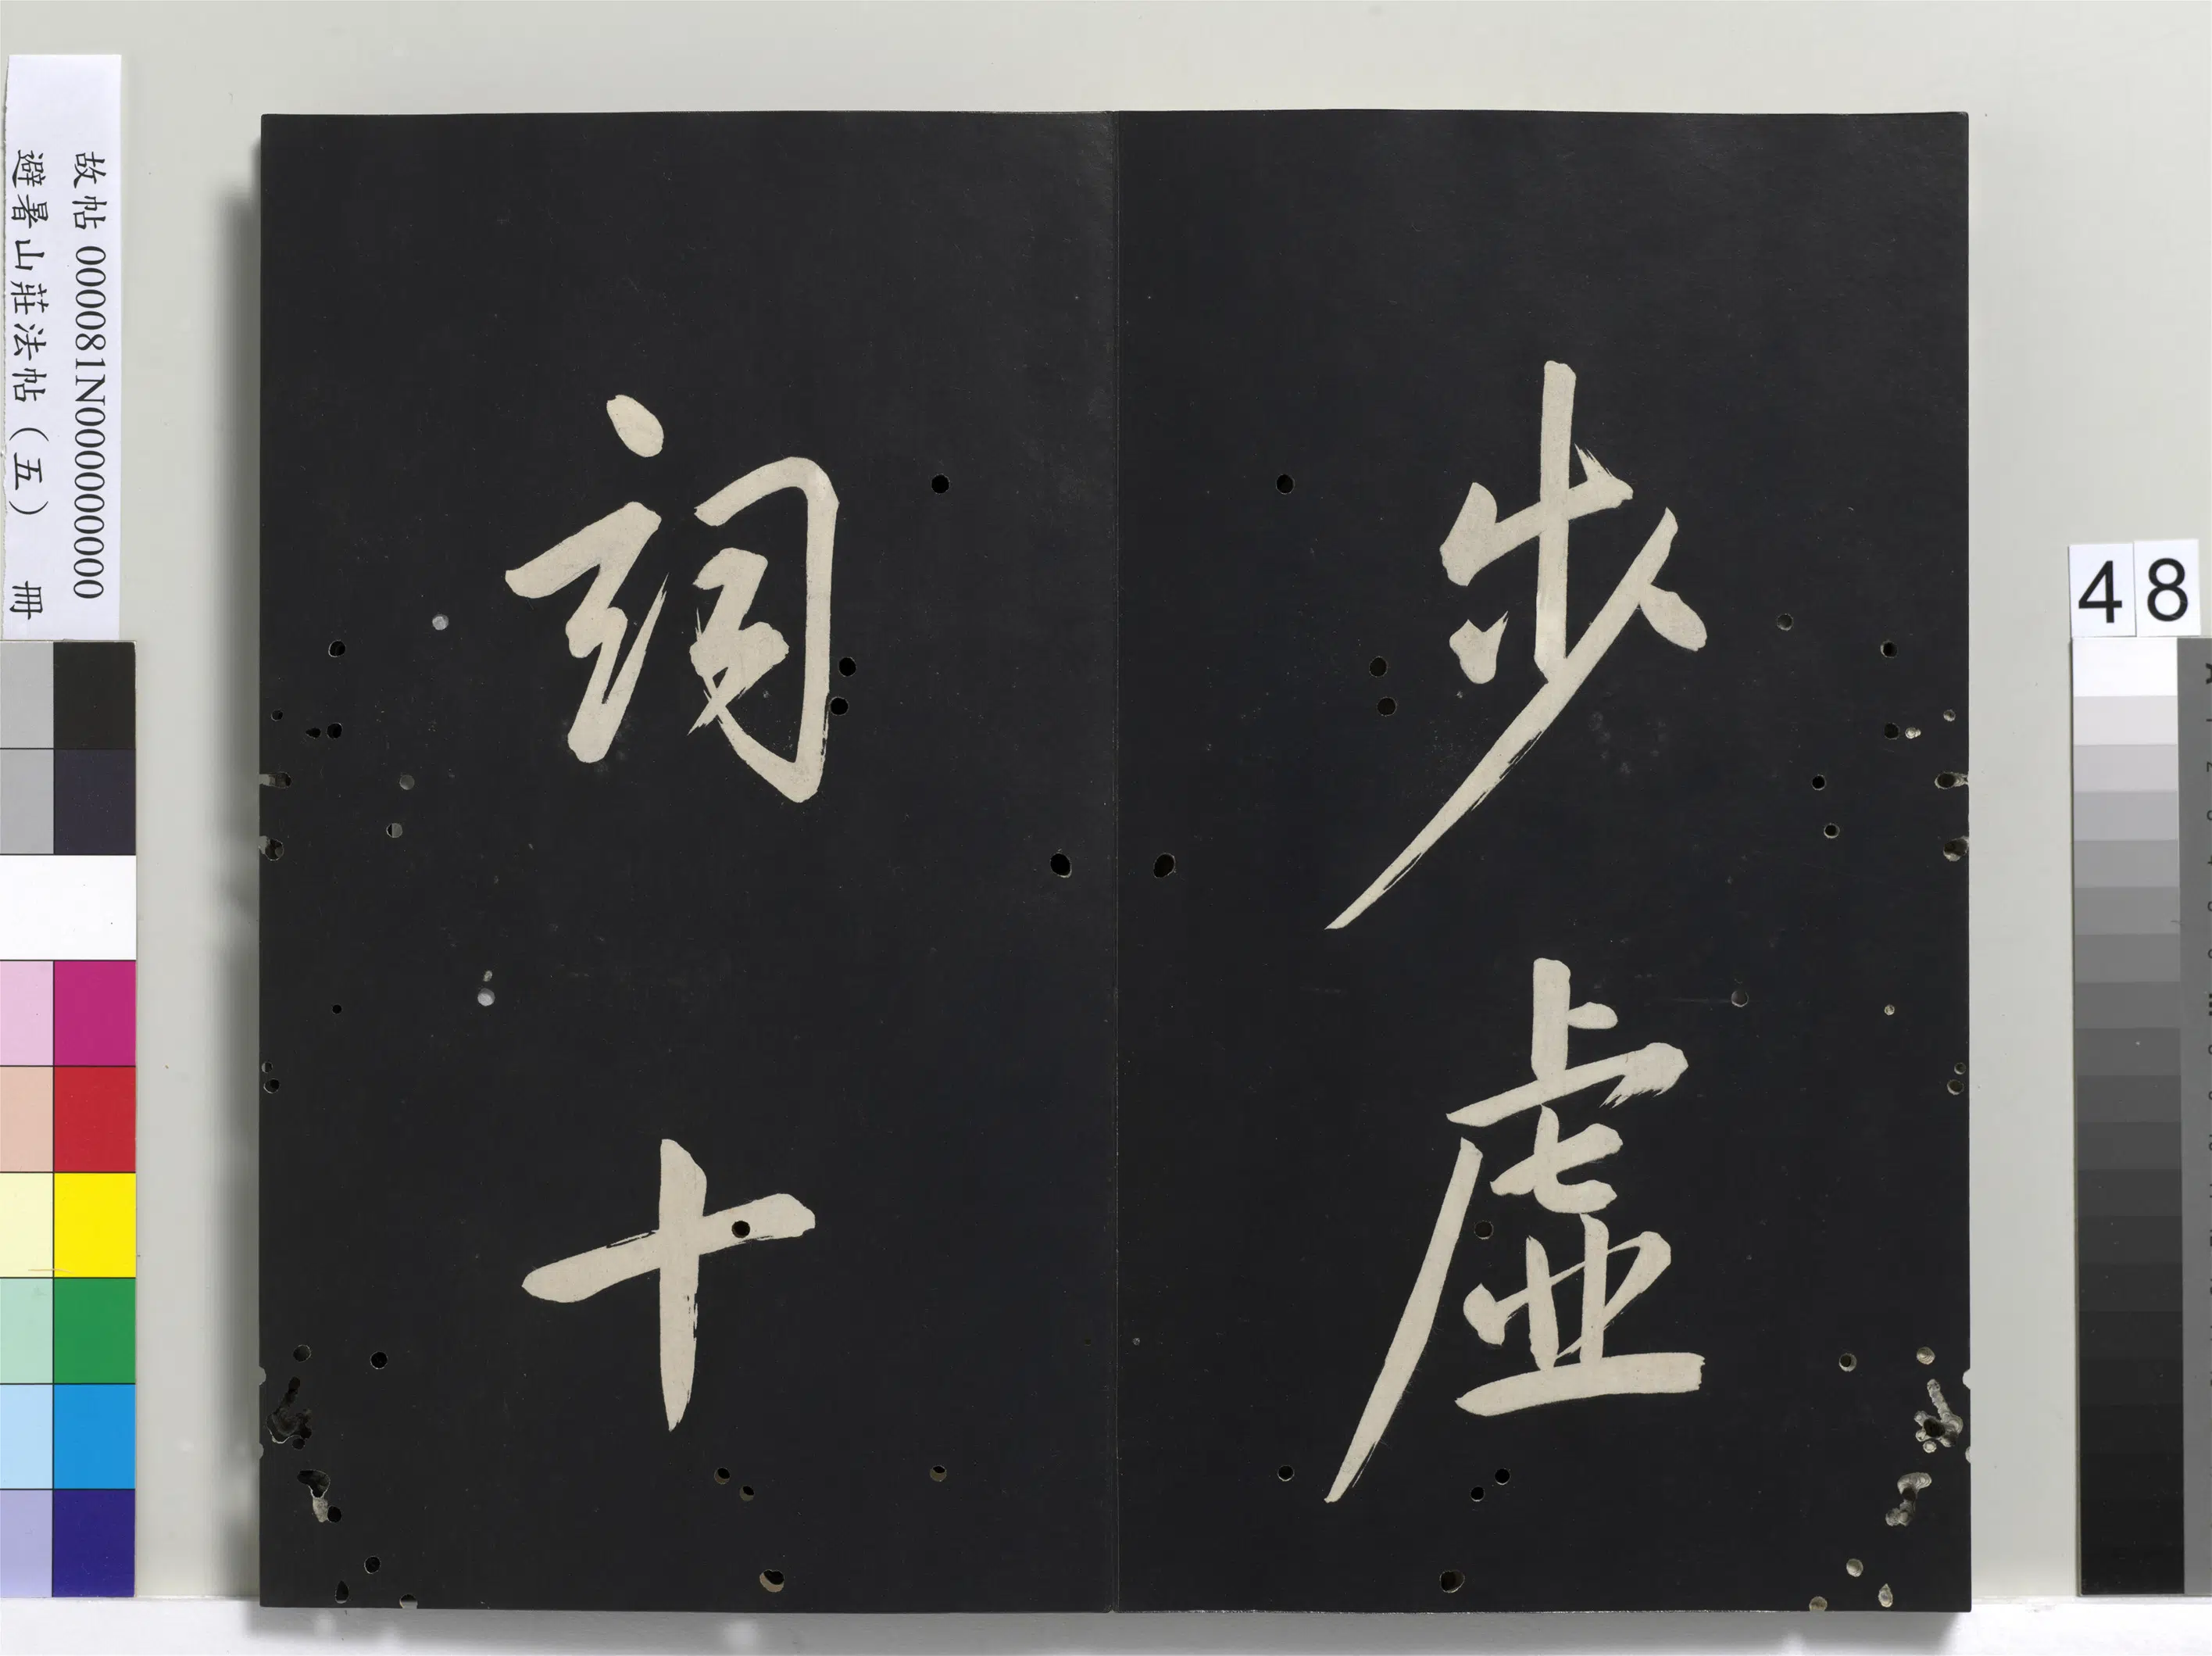 步虛
詞十
故帖 000081N000000000
避暑山莊法帖（五） 冊
48